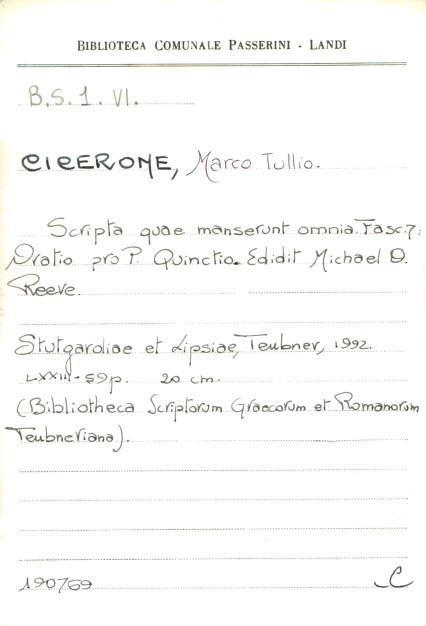 BIBLIOTECA COMUNALE PASSERINI - LANDI
B.S.1.VI.
CICERONE, Marco Tullio.
Scripta quae manserunt omnia. Fasc.7:
Oratio pro P. Quinctio. Edidit Michael D.
Reeve.
Stutgardiae et Lipsiae, Teubner, 1992.
LXXIII-59p. 20 cm.
(Bibliotheca Scriptorum Graecorum et Romanorum
Teubneriana).
190769 C